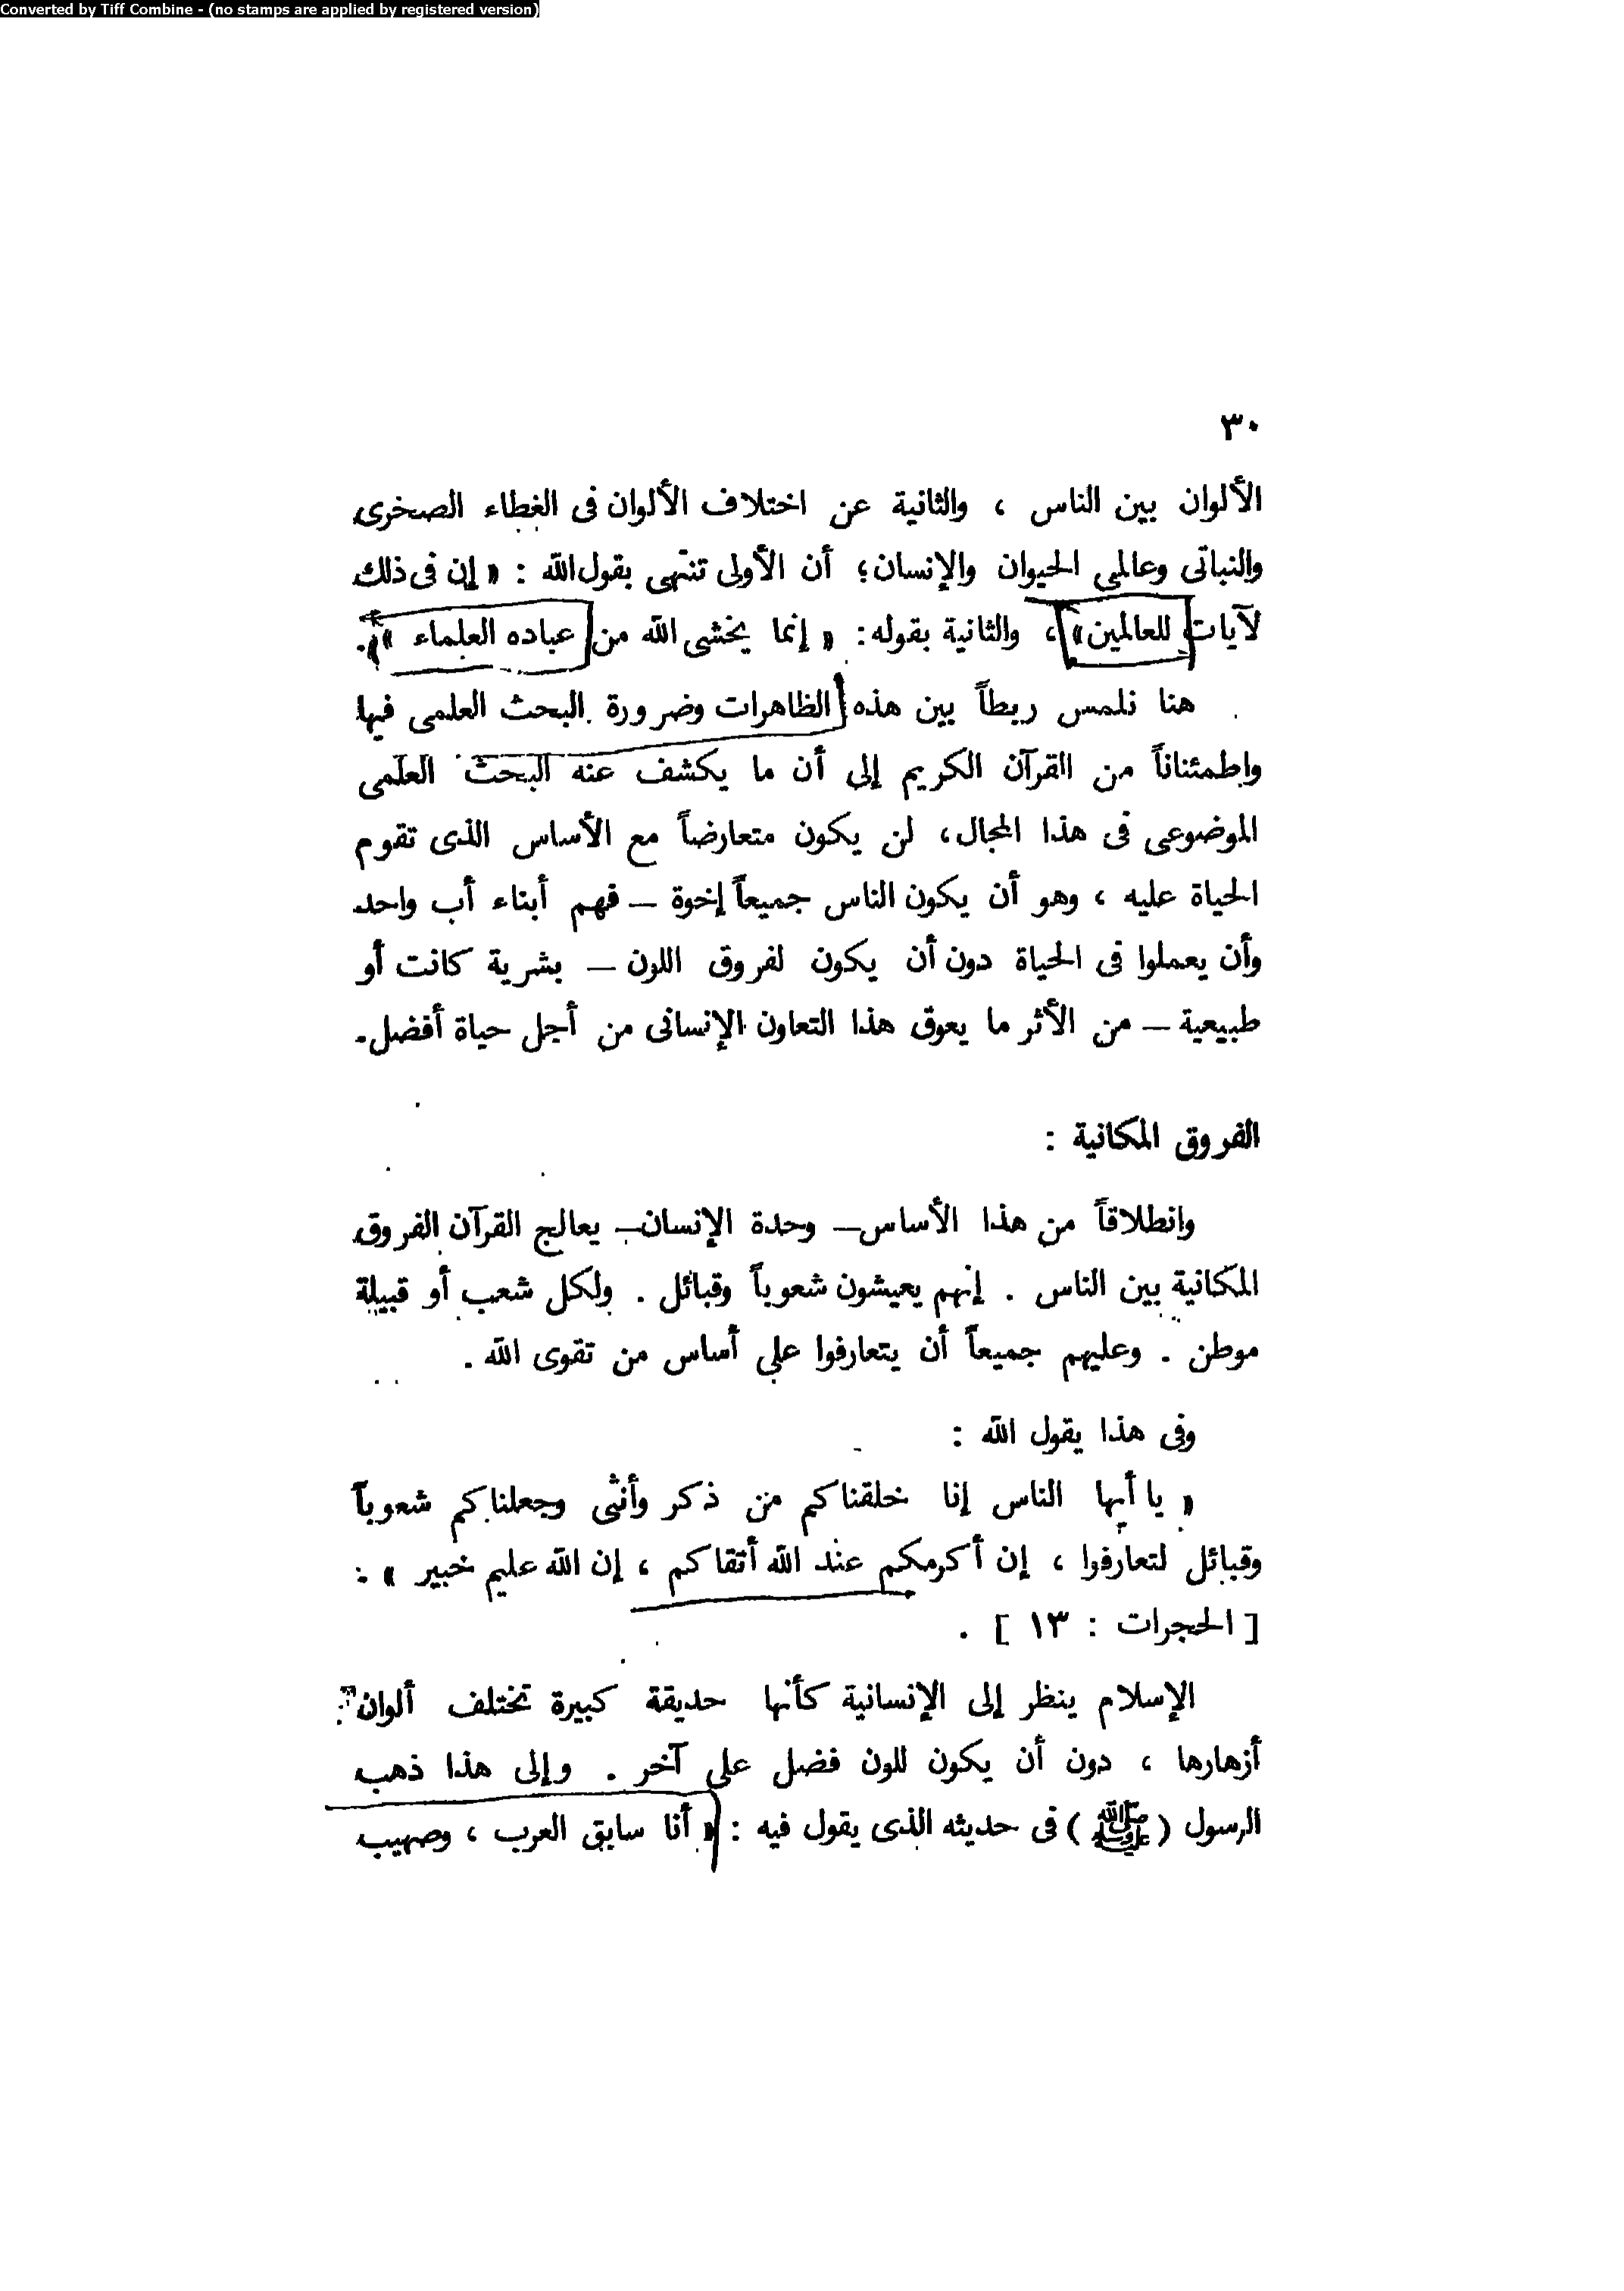 Converted by Tiff Combine - (no stamps are applied by registered version)
٣٠
الألوان بين الناس ، والثانية عن اختلاف الألوان فى الغطاء الصخرى
والنباتى وعالمى الحيوان والإنسان؛ أن الأولى تنتهى بقول الله : « إن فى ذلك
لآيات للعالمين» ، والثانية بقوله: « إنما يخشى الله من عباده العلماء » .
هنا نلمس ربطاً بين هذه الظاهرات وضرورة البحث العلمى فيها
واطمئناناً من القرآن الكريم إلى أن ما يكشف عنه البحث العلمى
الموضوعى فى هذا المجال، لن يكون متعارضاً مع الأساس الذى تقوم
الحياة عليه ، وهو أن يكون الناس جميعاً إخوة – فهم أبناء أب واحد
وأن يعملوا فى الحياة دون أن يكون لفروق اللون – بشرية كانت أو
طبيعية – من الأثر ما يعوق هذا التعاون الإنسانى من أجل حياة أفضل.
الفروق المكانية :
وانطلاقاً من هذا الأساس– وحدة الإنسان– يعالج القرآن الفروق
المكانية بين الناس . إنهم يعيشون شعوباً وقبائل . ولكل شعب أو قبيلة
موطن . وعليهم جميعاً أن يتعارفوا على أساس من تقوى الله .
وفى هذا يقول الله :
« يا أيها الناس إنا خلقناكم من ذكر وأنثى وجعلناكم شعوباً
وقبائل لتعارفوا ، إن أكرمكم عند الله أتقاكم ، إن الله عليم خبير » :
[ الحجرات : ١٣ ] .
الإسلام ينظر إلى الإنسانية كأنها حديقة كبيرة تختلف ألوان
أزهارها ، دون أن يكون للون فضل على آخر . وإلى هذا ذهب
الرسول (ﷺ) فى حديثه الذى يقول فيه : « أنا سابق العرب ، وصهيب